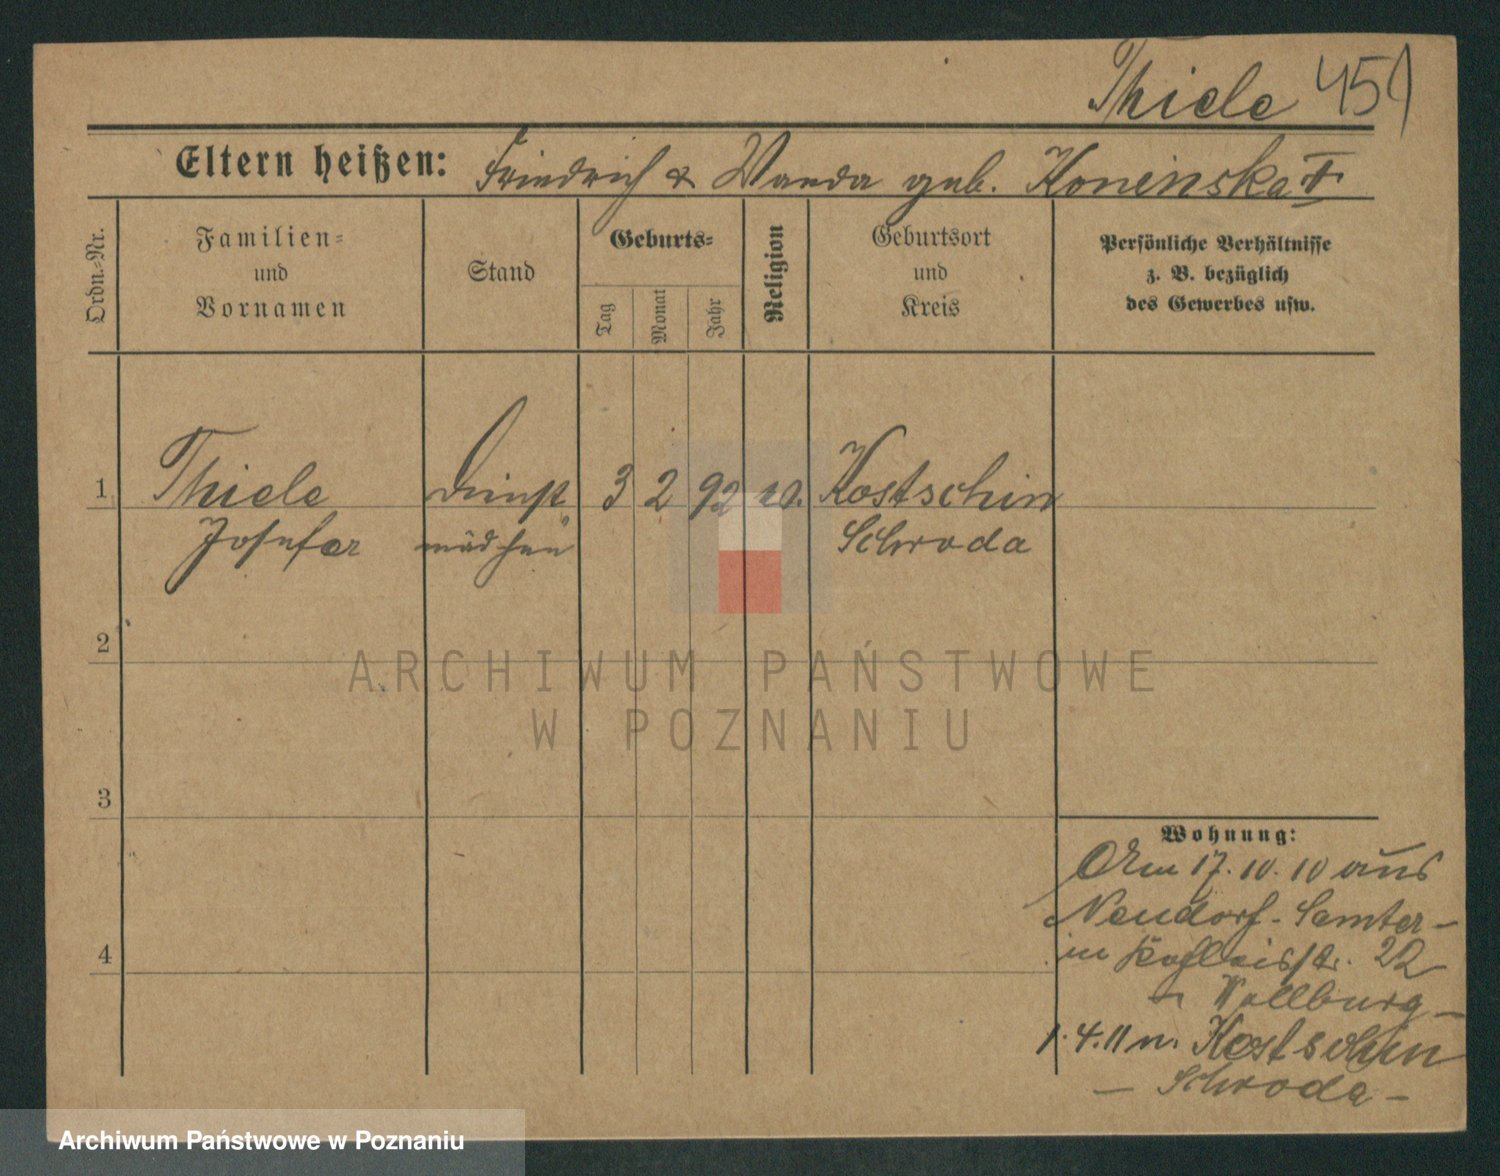 Thiele 451
Eltern heißen: Friedrich & Wanda geb. Koninska †
Ordn.-Nr.
Familien- und Vornamen
Stand
Geburts-
Tag
Monat
Jahr
Religion
Geburtsort und Kreis
Persönliche Verhältnisse
z. B. bezüglich
des Gewerbes usw.
1 Thiele Dienst 3 2 92 Kostschin
Josefa mädchen Schroda
2
ARCHIWUM PAŃSTWOWE
W POZNANIU
3
4
Wohnung:
Am 17.10.10 aus
Neudorf - Samter -
in 22
Wollburg -
1.4.11 n. Kostschin
- Schroda -
Archiwum Państwowe w Poznaniu